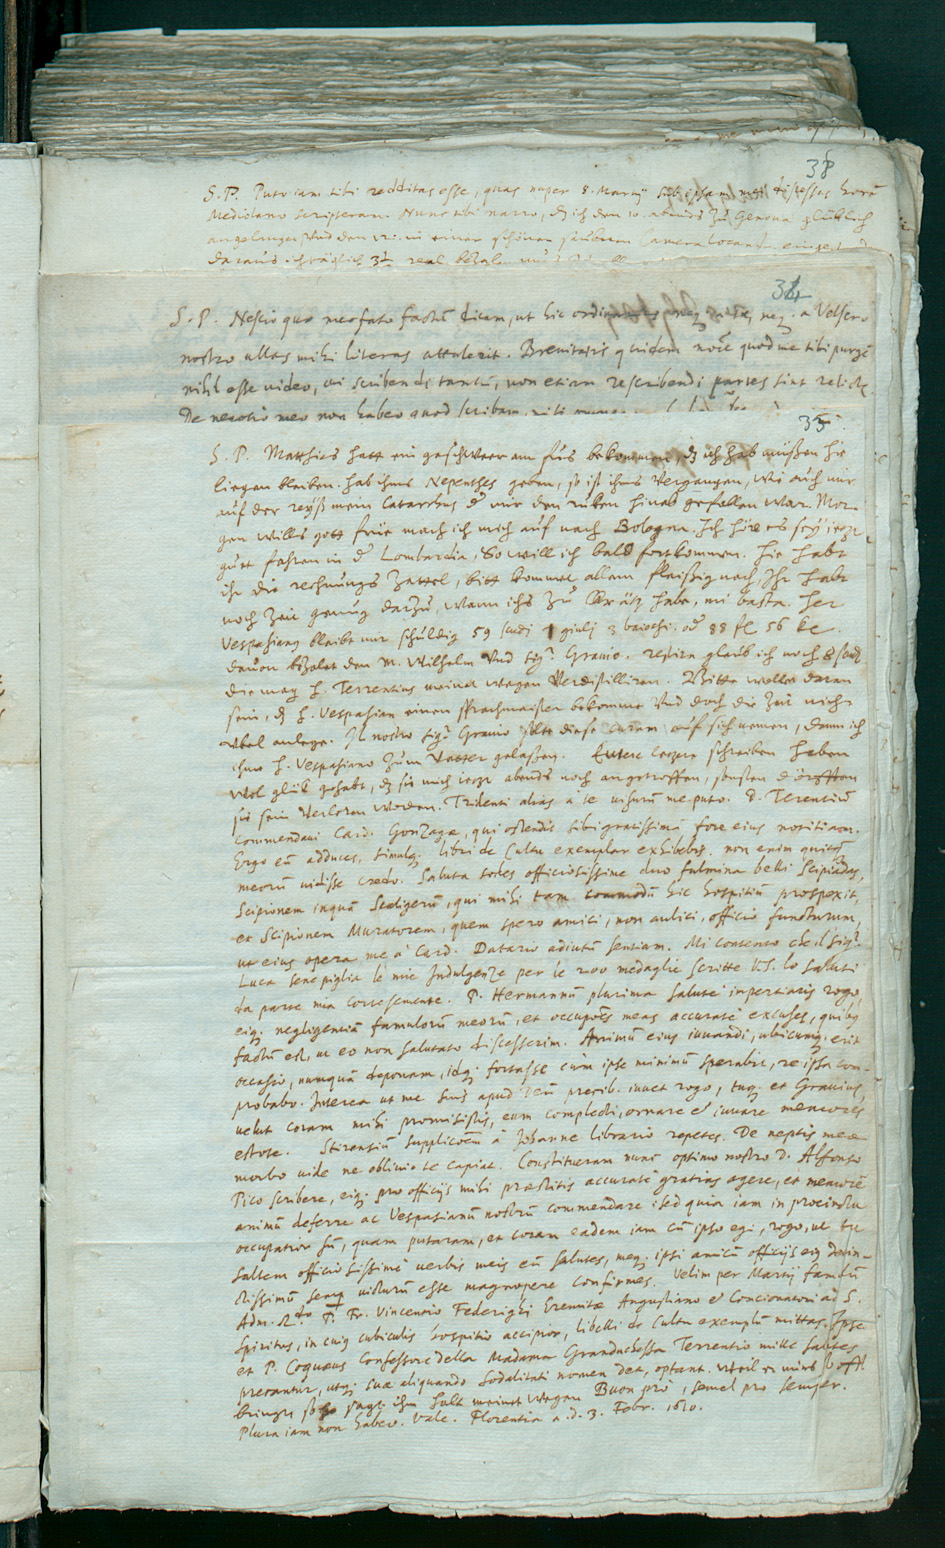 38
S. P. Puto iam tibi redditas esse, quas nuper 8. Martij sub ipsam discessus horã
Mediolano scripseram. Nunc tibi narro, dz ich den 10. abends zu Genova glücklich
angelangt, vnd den in einer schönen Camera locanda
daraus ich täglich 3½ real bezalen
34
S. P. Nescio quo meo fato factũ dicam, ut hic ordinarius neq. a te, neq. a Velsero
nostro ullas mihi literas attulerit. Brevitatis quidem noĩe quod me tibi purgẽ
nihil esse video, cui scribendi tantũ, non etiam rescribendi partes sint relictæ.
De negotio meo non habeo quod scribam, nisi
35
S. P. Matthias hatt ein geschweer am fus bekommen, dz ich hab müßen hie
ligen bleiben. hab ihms Nepenthes geben, so ist ihms vergangen, wie auch mir
auf der reyß mein Catarrhus der mir den ruken hinab gefallen war. Mor-
gen wills gott früe mach ich mich auf nach Bologna. Ich höre es sey iezt
gut fahren in der Lombardia, So will ich bald fortkommen. hie habt
ihr die rechnungs zattel, bitt kommet allem fleißig nach, Ihr habt
noch Zeit genug darzu, wann ichs zu Grätz habe, mi basta. Her
Vespasiang bleibt mir schuldig 59 scudi 1 giulj 3 baiochi. od 88 fl 56 kr.
dauon bezalet den M. Wilhelm vnd Sigr. Gravio. restirn glaub ich noch 8 scudi
die mag H. Terrentius meinet wegen verdistilliren. Bitte wollet daran
sein, dz H. Vespasian einen sprachmaister bekomme vnd doch die Zeit nicht
vbel anlege. Il nostro Sigr Gravio solte diese curam auf sich nemen, dann ich
ihme H. Vespasiano zum Vatter gelaßen. Euere letzere schreiben haben
wol glük gehabt, dz sie mich iezt abends noch angetroffen, sonsten dörfften
sie sein verloren worden. Tridenti alias a te visurũ me puto. D. Terentiũ
commendaui Card. Gonzagæ, qui ostendit sibi gratissimã fore eius notitiam.
Ergo eũ adduces, simulq. libri de Cultu exemplar exhibebis, non enim
meorũ vidisse credo. Saluta sodes officiosissime duo fulmina belli Scipiadas,
Scipionem inquã Scaligerũ, qui mihi tam commodũ hic hospitiũ prospexit,
et Scipionem Muratorem, quem spero amici, non aulici, officio functurum,
ut eius opera me à Card. Datario adiutũ sentiam. Mi contento che il Sigr.
Luca sene piglia le mie Indulgenze per le 200 medaglie scritte V.S. lo saluti
da parte mia cortesemente. P. Hermannũ plurima salutẽ impertiaris rogo,
eiq. negligentiã famulorũ meorũ, et occupões meas accuratè excuses, quibus
factũ est, ut eo non salutato discesserim. Animũ eius iuuandi, ubicunq. erit
occasio, nunquã deponam, idq. fortasse cùm ipse minimũ sperabit, re ipsa com-
probabo. Interea ut me suis apud Deũ precib. iuuet rogo, tuq. et Gravius,
uelut coram mihi promisistis, eum complecti, ornare et iuuare memores
estote. Stirensiũ supplicõem à Johanne librario repetes. De neptis meæ
morbo vide ne obliuio te capiat. Constitueram nunc optimo nostro D. Alfonso
Pico scribere, eiq. pro officijs mihi præstitis accuratè gratias agere, et memorẽ
animũ deferre ac Vespasianũ nostrũ commendare: sed quia iam in procinctu
occupatior sũ, quam putaram, et coram eadem iam cũ ipso egi, rogo, ut tu
saltem officiosissimè uerbis meis eũ salutes, meq. ipsi amicũ officijs eiq devin-
ctissimũ semp. victurũ esse magnopere confirmes. Velim per Martij famulũ
Adm. R.do P. Fr. Vincentio Federighi Eremitæ Augustiano et Concionatori ad S.
Spiritus, in cuiq cubiculis hospitio accipior, libelli de Cultu exemplũ mittas. Ipse
et P. Coquæus Confessore della Madama Granduchessa Terrentio mille salutes
precantur, utq. suæ aliquando Sodalitati nomen det, optant.
bringt, so sagt ihm halt meinet wegen Buon prò, semel pro semper.
Plura iam non habeo. Vale. Florentia a. d. 3. Febr. 1610.